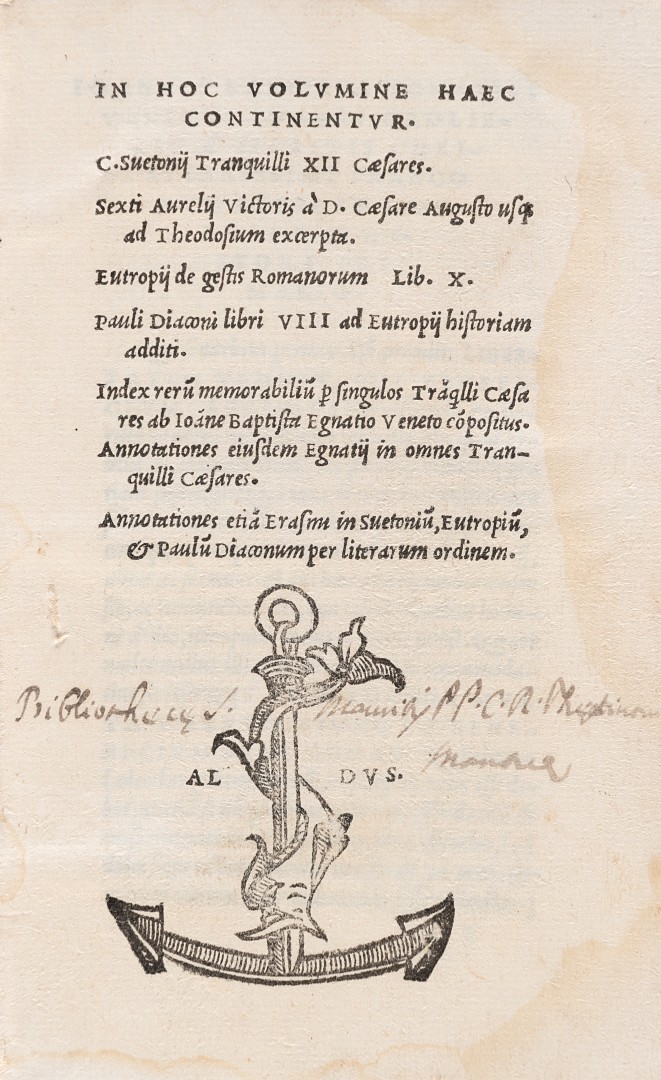 IN HOC VOLVMINE HAEC
CONTINENTVR.
C. Suetonij Tranquilli XII Cæſares.
Sexti Aurelij Victoris à D. Cæſare Auguſto uſq;
ad Theodoſium excerpta.
Eutropij de geſtis Romanorum Lib. X.
Pauli Diaconi libri VIII ad Eutropij hiſtoriam
additi.
Index rerū memorabiliū ꝑ ſingulos Trāq̇lli Cæſa
res ab Ioāne Baptiſta Egnatio Veneto cōpoſitus.
Annotationes eiuſdem Egnatij in omnes Tran-
quilli Cæſares.
Annotationes etiā Eraſmi in Suetoniū, Eutropiū,
& Paulū Diaconum per literarum ordinem.
Bibliothecę S. Mauritij PP. C. R.
AL DVS.